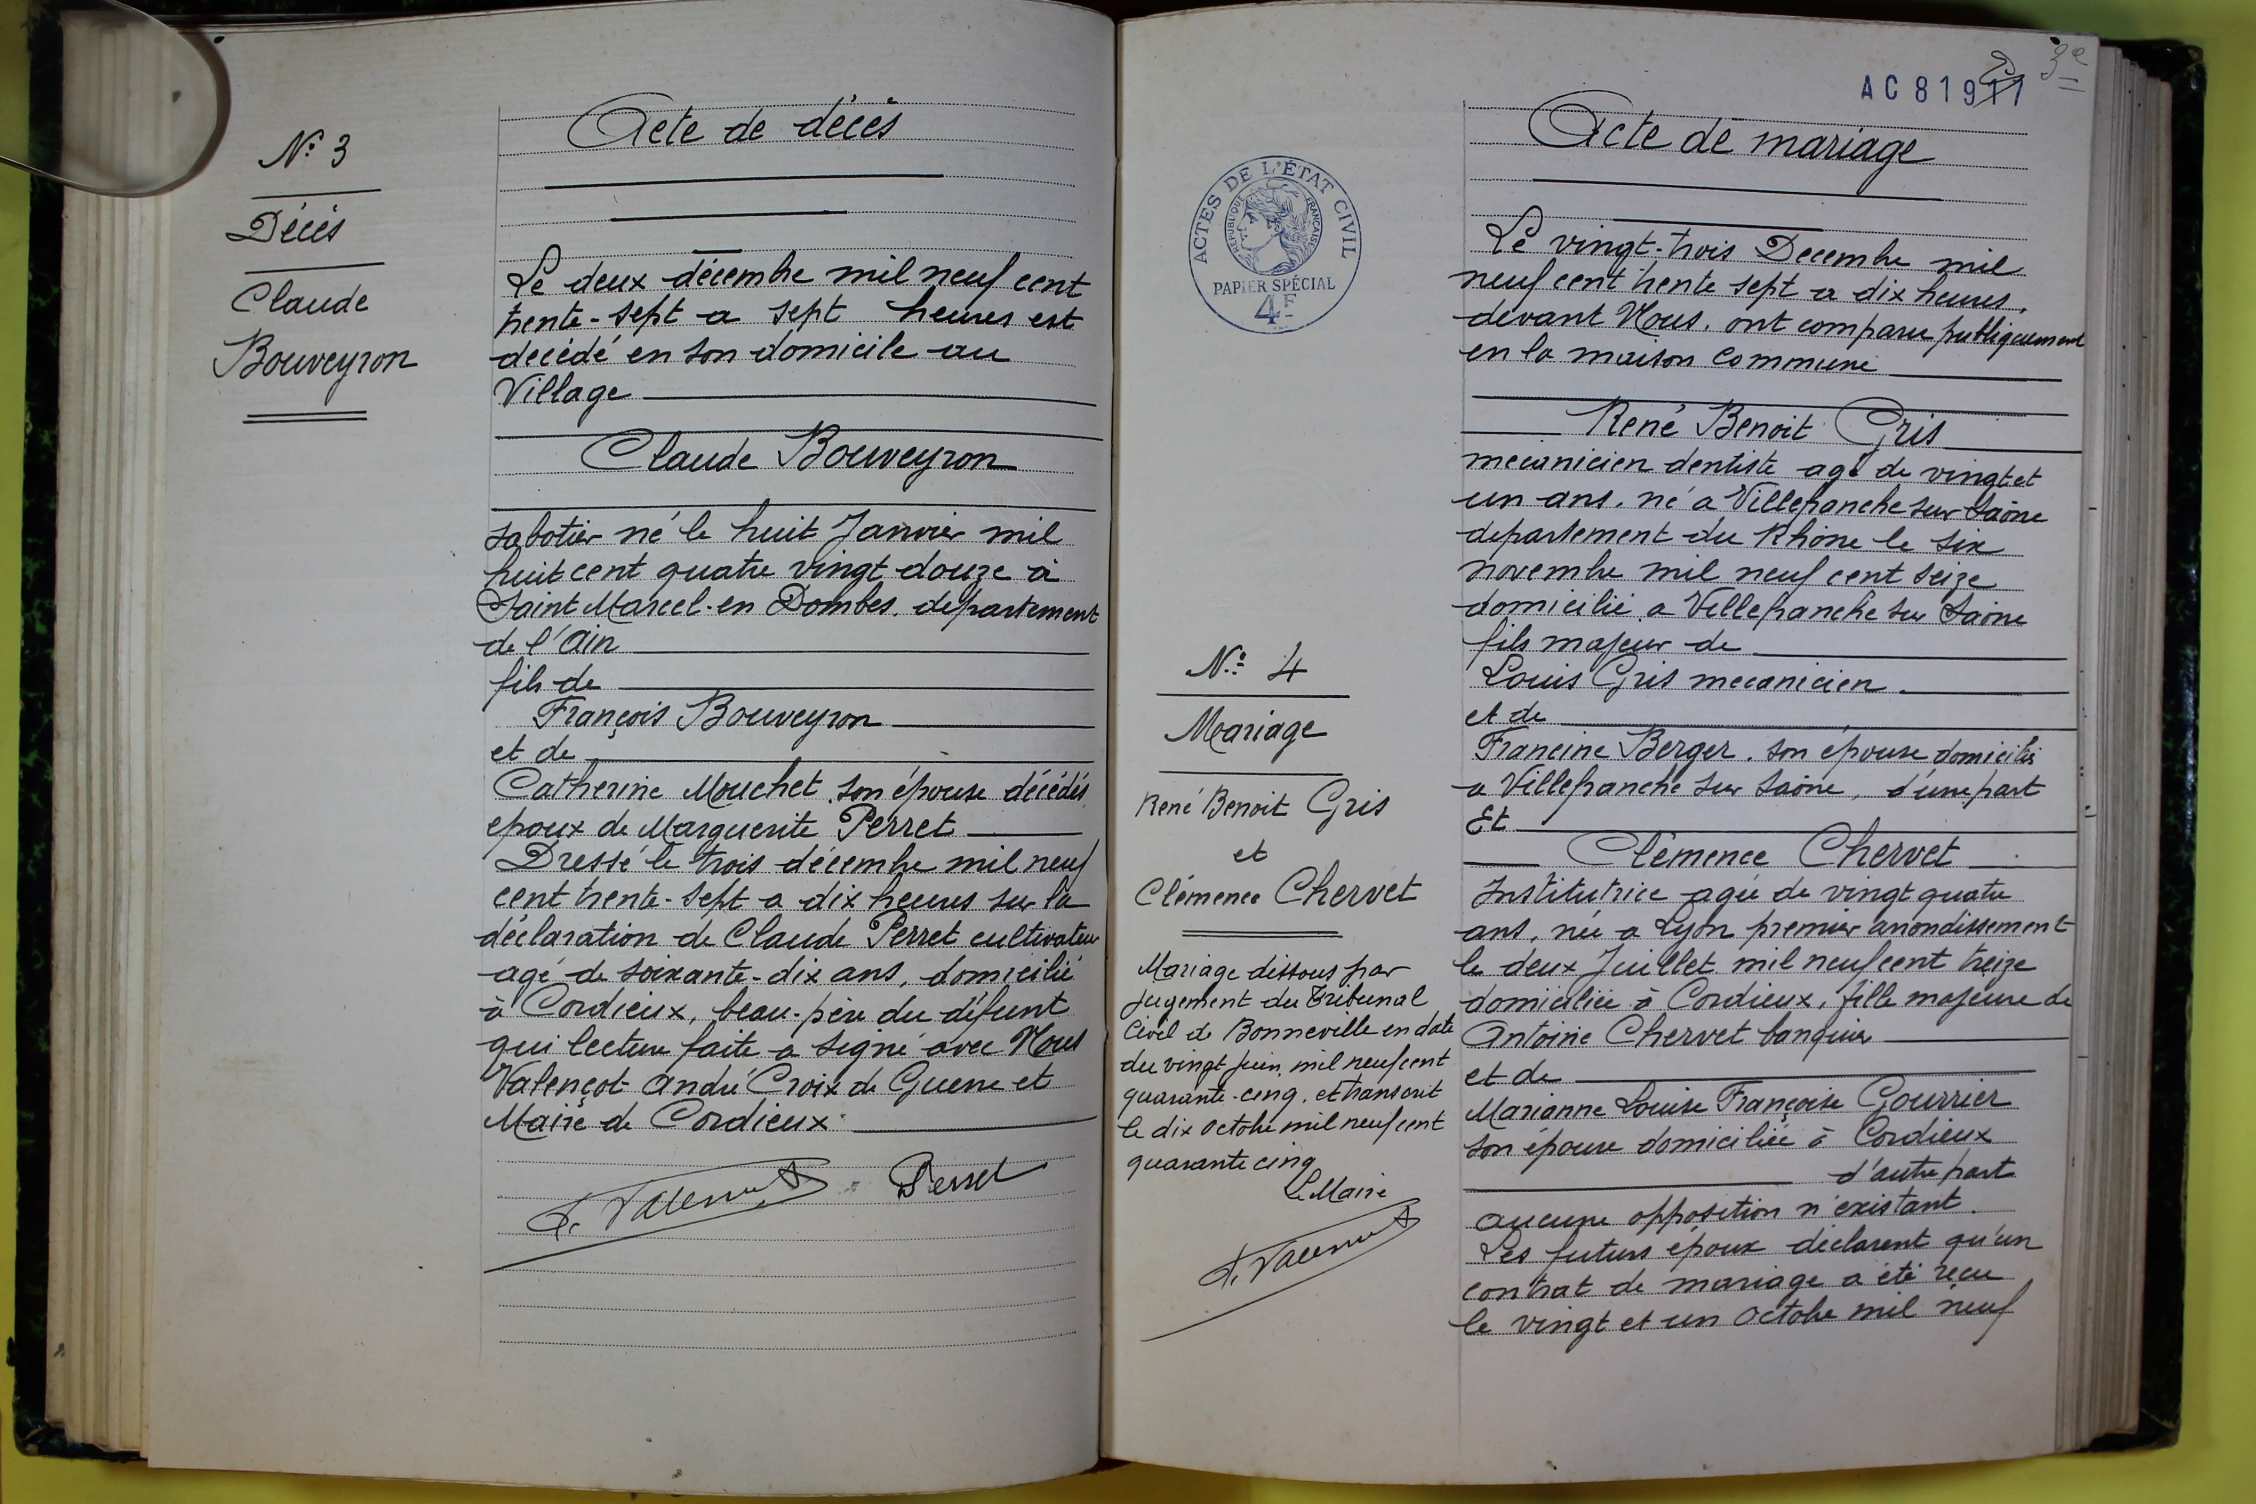 N° 3
Décès
Claude
Bouveyron
Acte de décès
Le deux décembre mil neuf cent
trente-sept a sept heures est
decédé en son domicile au
Village
Claude Bouveyron
sabotier né le huit Janvier mil
huit cent quatre vingt douze à
Saint Marcel-en Dombes. département
de l'Ain
fils de
François Bouveyron
et de
Catherine Mouchet, son épouse décédés
epoux de Marguerite Perret
Dressé le trois décembre mil neuf
cent trente-sept a dix heures sur la
déclaration de Claude Perret cultivateur
agé de soixante-dix ans, domicilié
à Cordieux, beau-père du défunt
qui lecture faite a signé avec Nous
Valençot André Croix de Guerre et
Maire de Cordieux.
Perret
AC 81911
3e
ACTES DE L'ÉTAT CIVIL
RÉPUBLIQUE FRANÇAISE
PAPIER SPÉCIAL
4F
N° 4
Mariage
René Benoit Gris
et
Clémence Chervet
Mariage dissous par
jugement du Tribunal
Civil de Bonneville en date
du vingt juin mil neuf cent
quarante-cinq. et transcrit
le dix octobre mil neuf cent
quarante cinq
Le Maire
Acte de mariage
Le vingt-trois Decembre mil
neuf cent trente sept a dix heures.
devant Nous. ont comparu publiquement
en la maison commune
René Benoit Gris
mecanicien dentiste agé de vingt et
un ans. né a Villefranche sur Saône
departement du Rhône le six
novembre mil neuf cent seize
domicilié a Villefranche sur Saône
fils majeur de
Louis Gris mecanicien.
et de
Francine Berger. son épouse domiciliés
a Villefranche sur Saône, d'une part
Et
Clémence Chervet
Institutrice agée de vingt quatre
ans, née a Lyon premier arrondissement
le deux Juillet mil neuf cent treize
domiciliée à Cordieux, fille majeure de
Antoine Chervet banquier
et de
Marianne Louise Françoise Gourrier
son épouse domiciliée à Cordieux
d'autre part
aucune opposition n'existant.
Les futurs époux déclarent qu'un
contrat de mariage a été reçu
le vingt et un Octobre mil neuf